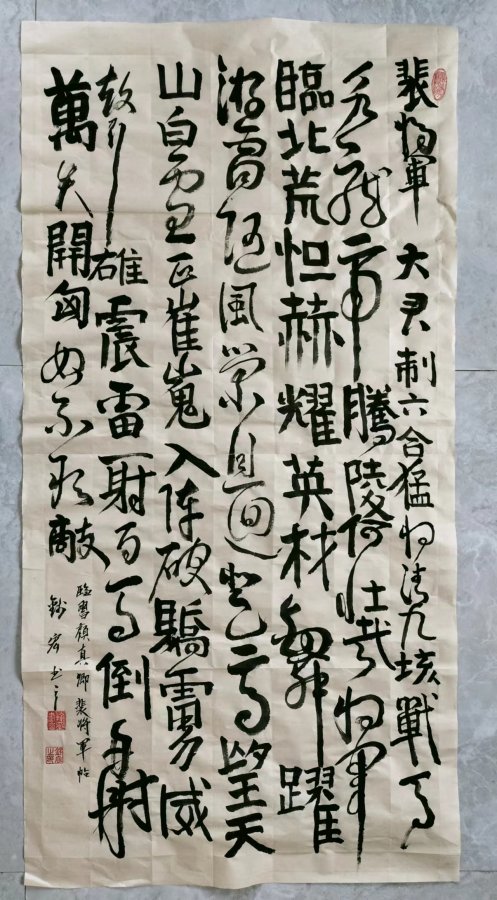 裴将軍 大君制六合猛将清九垓戰馬
若龍虎騰陵何壮哉将軍
臨北荒怛赫耀英材劍舞躍
游電随風縈且迴登高望天
山白雪正崔嵬入阵破驕虜威
聲雄震雷一射百馬倒再射
萬夫開匈奴不敢敵
臨習顏真卿裴将軍帖